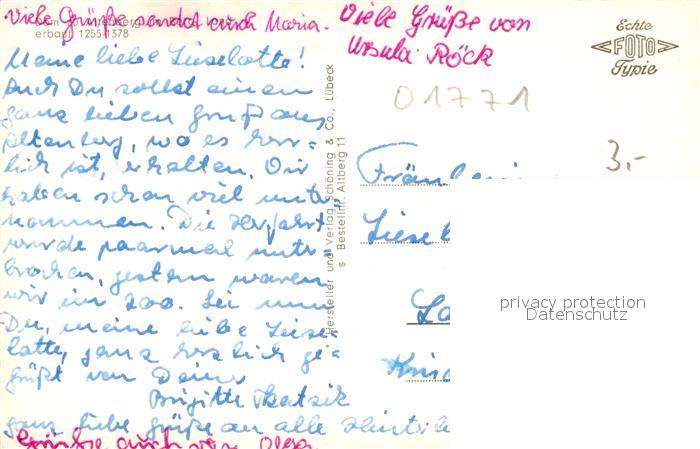 Viele Grüße sendet auch Maria.
erbaut 1255-1378
Viele Grüße von
Ursula Röck
Echte
FOTO
Typie
Meine liebe Lieselotte!
Auch Du sollst einen
ganz lieben Gruß aus
Altenberg, wo es herr-
lich ist, erhalten. Wir
haben schon viel unter-
nommen. Die Herfahrt
wurde paarmal unter-
brochen, gestern waren
wir im Zoo. Sei nun
Du, meine liebe Liese-
lotte, ganz herzlich ge-
grüßt von Deiner
Brigitte
ganz liebe Grüße an alle
Grüße auch von Olga
Hersteller und Verlag Schöning & Co., Lübeck
s Bestellnr. Altberg 11
01771
3,-
Fräulein
Liesel
La
Kin
privacy protection
Datenschutz